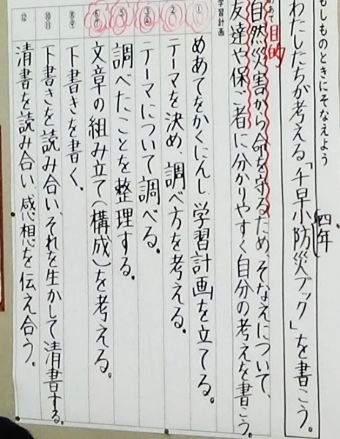 もしものときにそなえよう
四年
わたしたちが考える「千早小防災ブック」を書こう。
目的
自然災害から命を守るため、そなえについて、
友達や保ご者に分かりやすく自分の考えを書こう。
学習計画
① めあてをかくにんし学習計画を立てる。
② テーマを決め調べ方を考える。
テーマについて調べる。
調べたことを整理する。
文章の組み立て(構成)を考える。
下書きを書く。
下書きを読み合い、それを生かして清書する。
⑫ 清書を読み合い、感想を伝え合う。